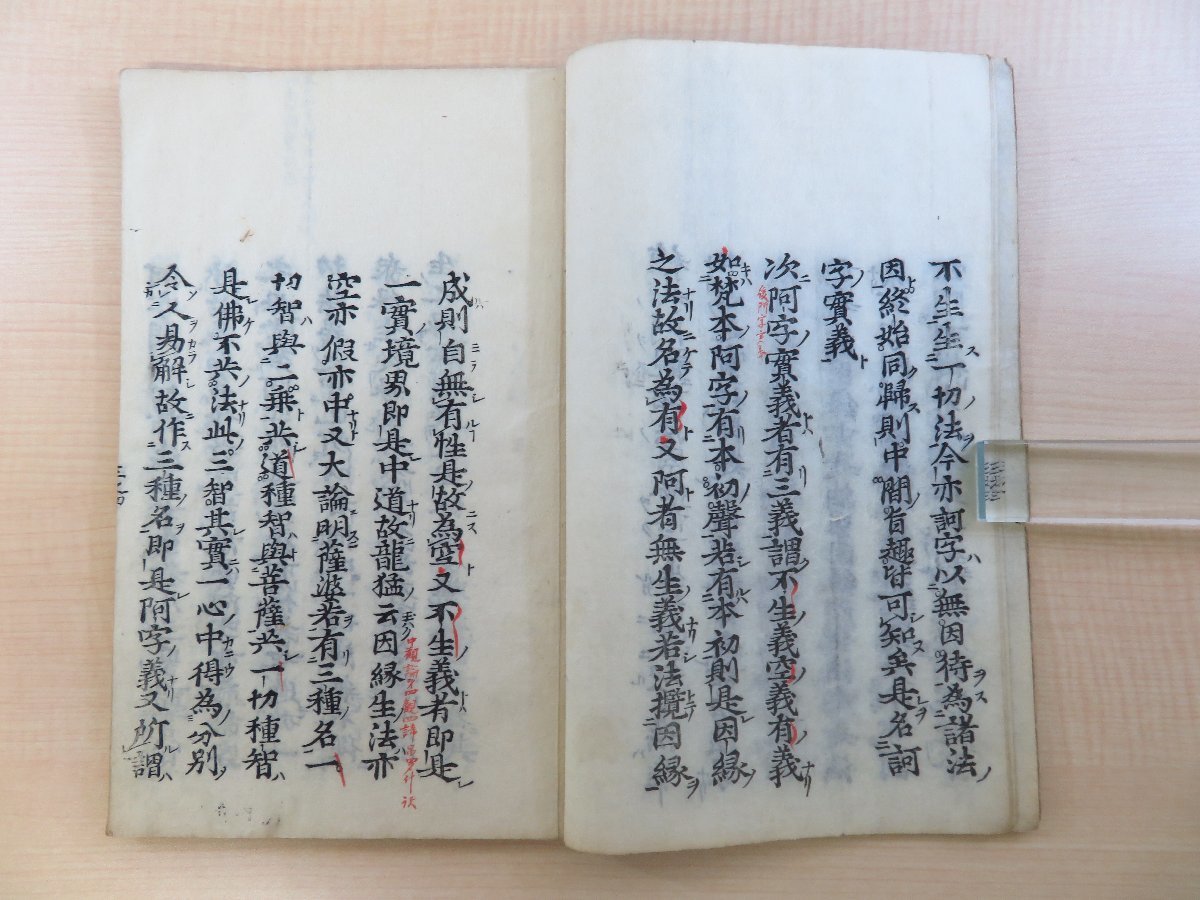 不生生一切法今亦訶字以無因待為諸法
因終始同歸則中間旨趣皆可知矣是名訶
字實義
次阿字實義者有三義謂不生義空義有義
如梵本阿字有本初聲若有本初則是因緣
之法故名為有又阿者無生義若法攬因緣
成則自無有性是故為空又不生義者即是
一實境界即是中道故龍猛云因緣生法亦
空亦假亦中又大論明薩婆若有三種名一
切智與二乘共道種智與菩薩共一切種智
是佛不共法此三智其實一心中得為分別
令人易解故作三種名即是阿字義又所謂